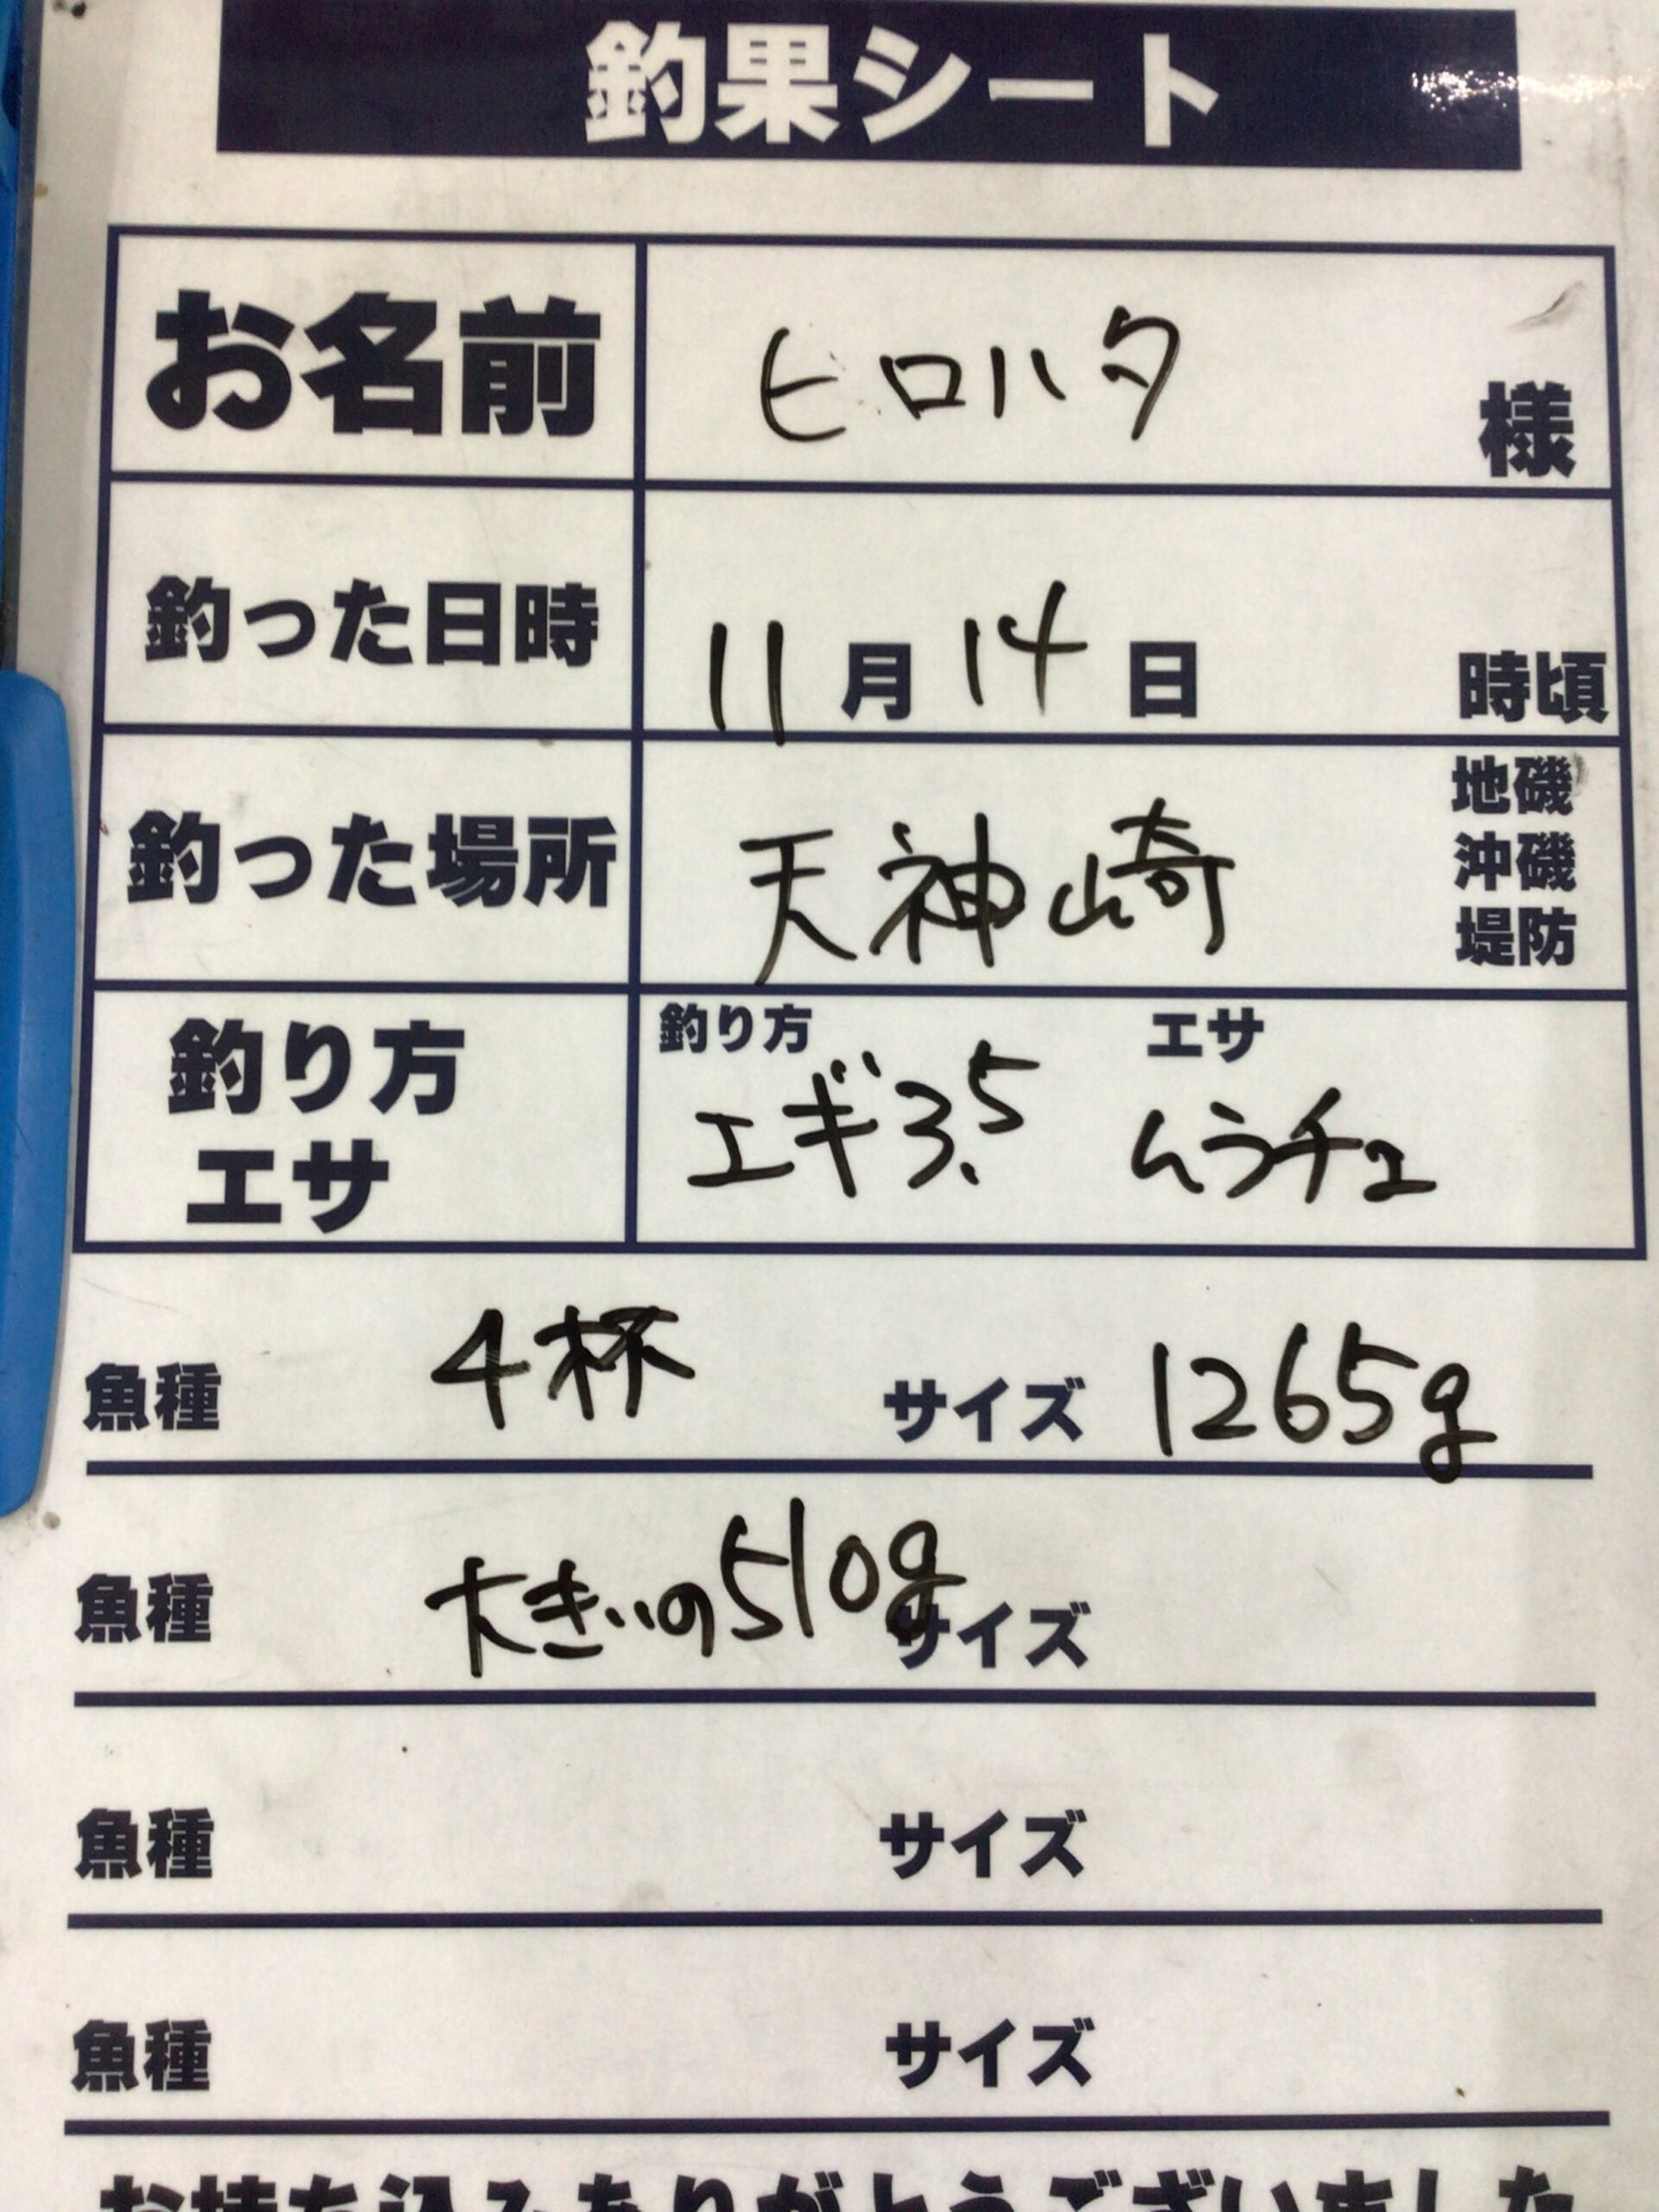 釣果シート
お名前 ヒロハタ 様
釣った日時 11月14日 時頃
釣った場所 天神崎 地磯
沖磯
堤防
釣り方 エサ
釣り方 エギ3.5 ムラチェ
エサ
魚種 4杯 サイズ 1265g
魚種 大きいの510g サイズ
魚種 サイズ
魚種 サイズ
お持ち込みありがとうございました